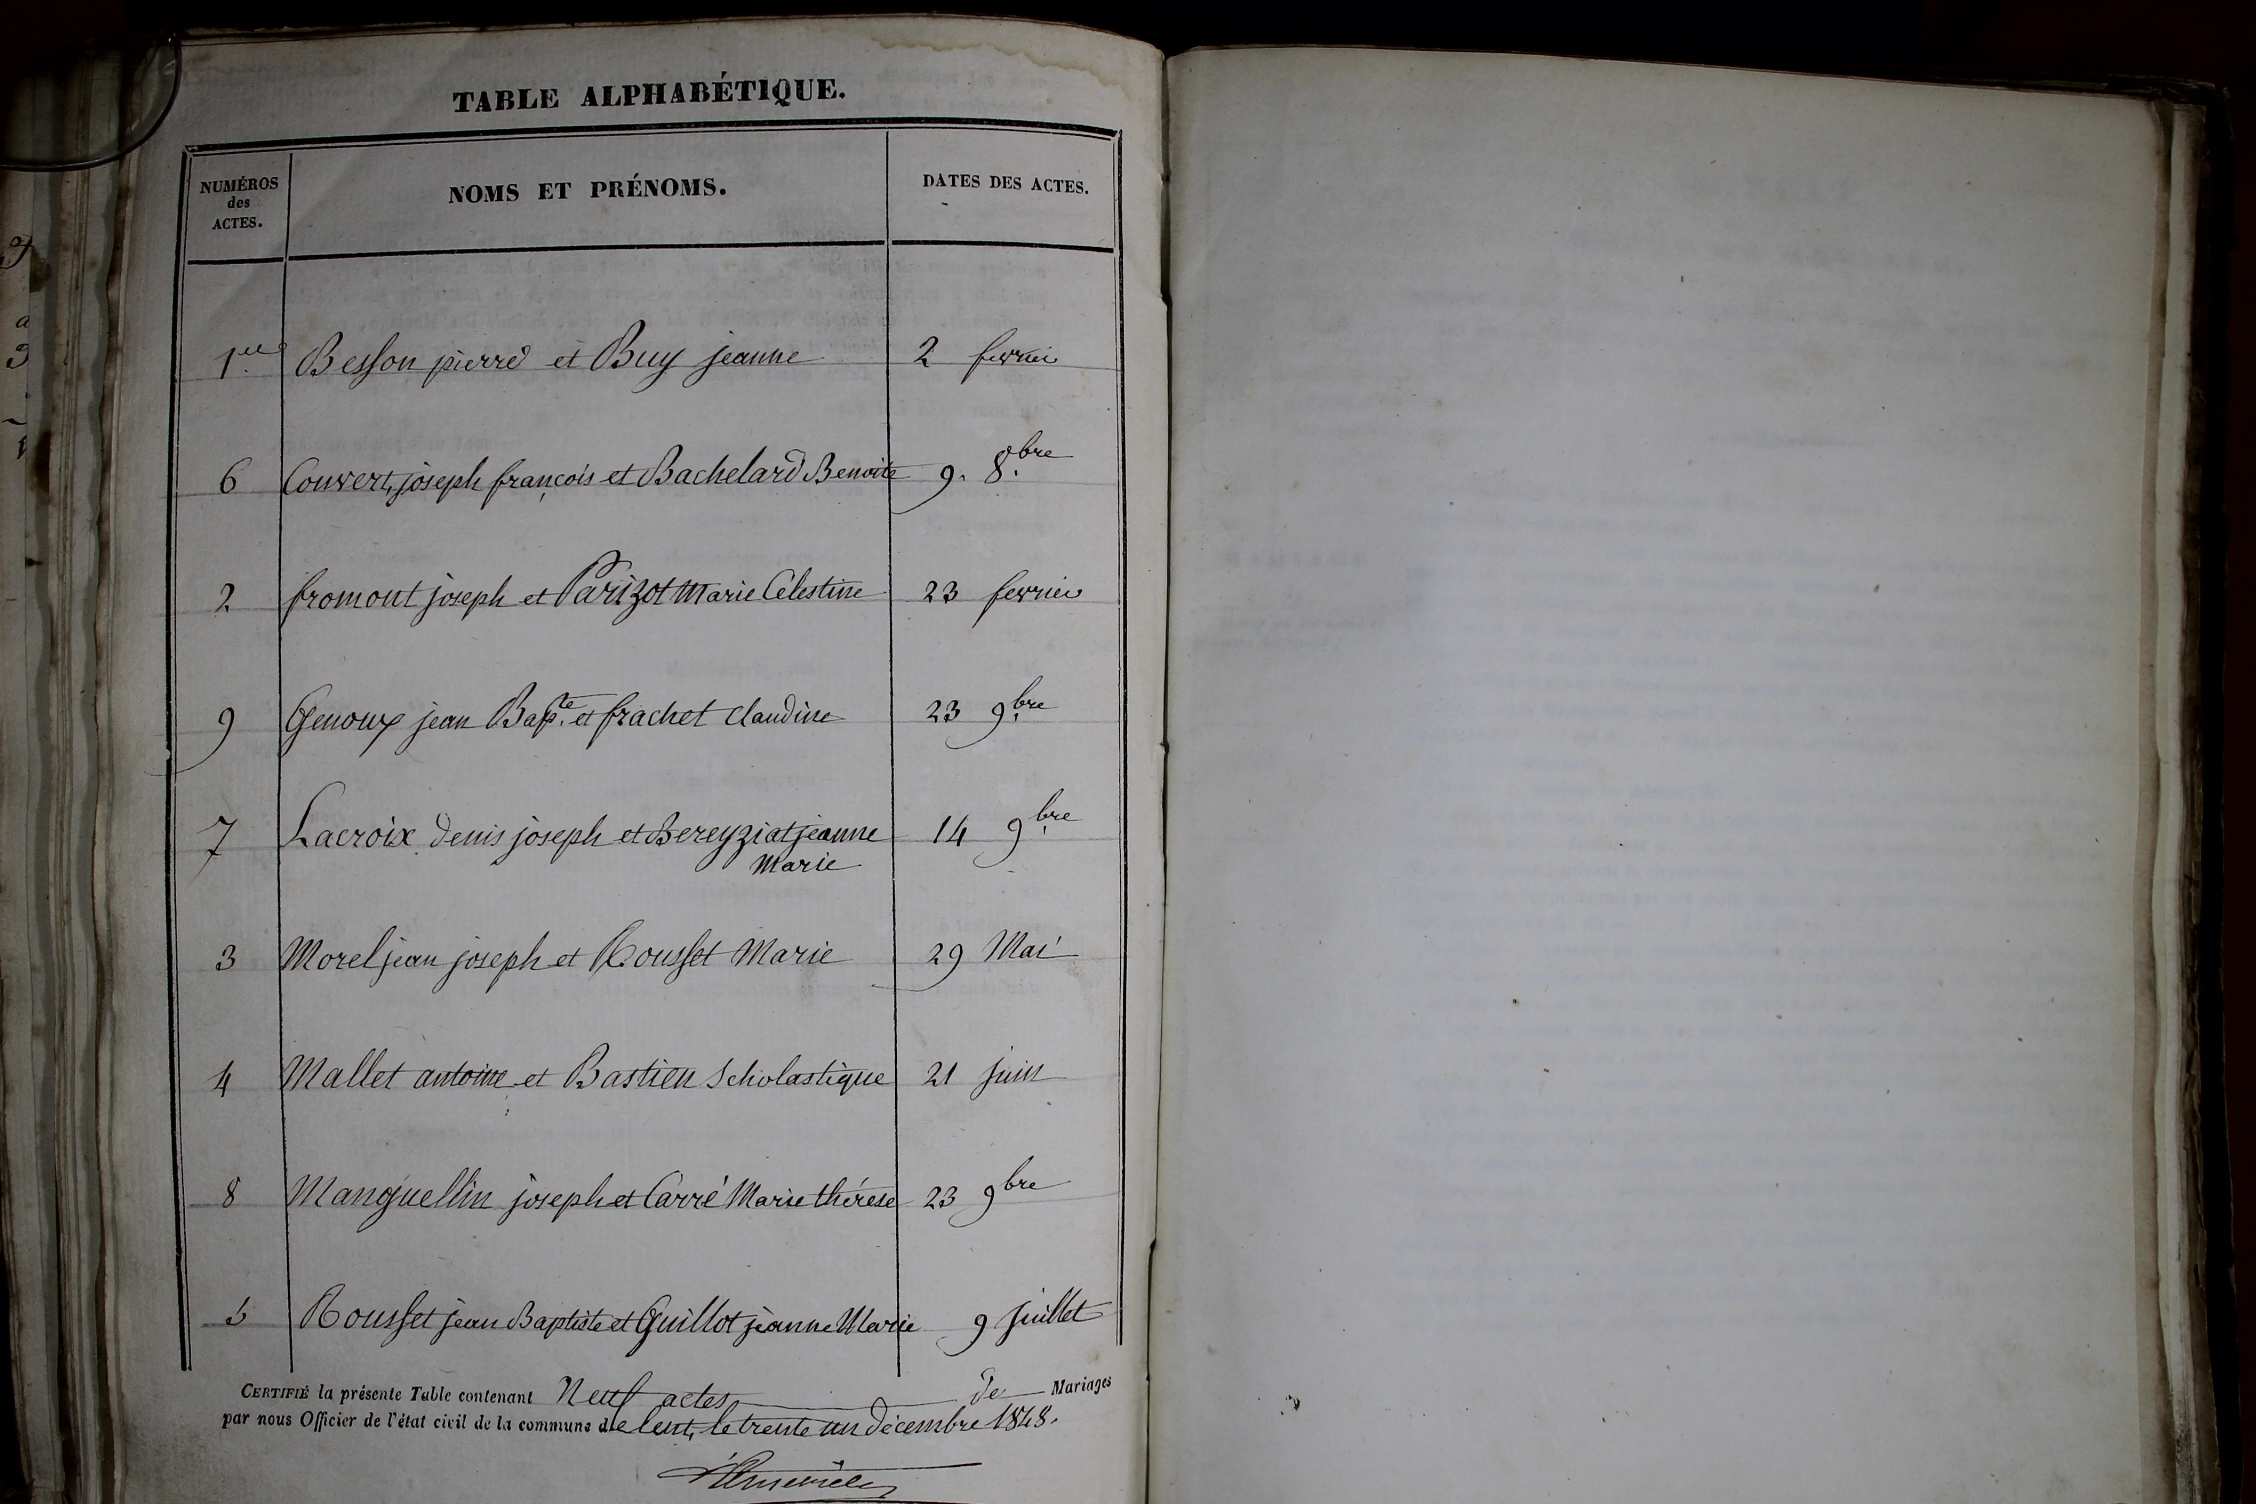 TABLE ALPHABÉTIQUE.
NUMÉROS
des
ACTES.
NOMS ET PRÉNOMS.
DATES DES ACTES.
1er Besson pierre et Buy jeanne 2 fevrier
6 Convert, joseph françois et Bachelard Benoite 9. 8.bre
2 fromont joseph et Parizot Marie Célestine 23 fevrier
9 Genoux jean Bapte. et frachet Claudine 23 9.bre
7 Lacroix denis joseph et Bereyziat jeanne 14 9.bre
Marie
3 Morel jean joseph et Rousset Marie 29 Mai
4 Mallet antoine et Bastien Scholastique 21 juin
8 Manguellin joseph et Carré Marie thérese 23 9bre
5 Rousset jean Baptiste et Guillot jeanne Marie 9 juillet
CERTIFIÉ la présente Table contenant Neuf actes de Mariages
par nous Officier de l'état civil de la commune de lent, le trente un décembre 1848.